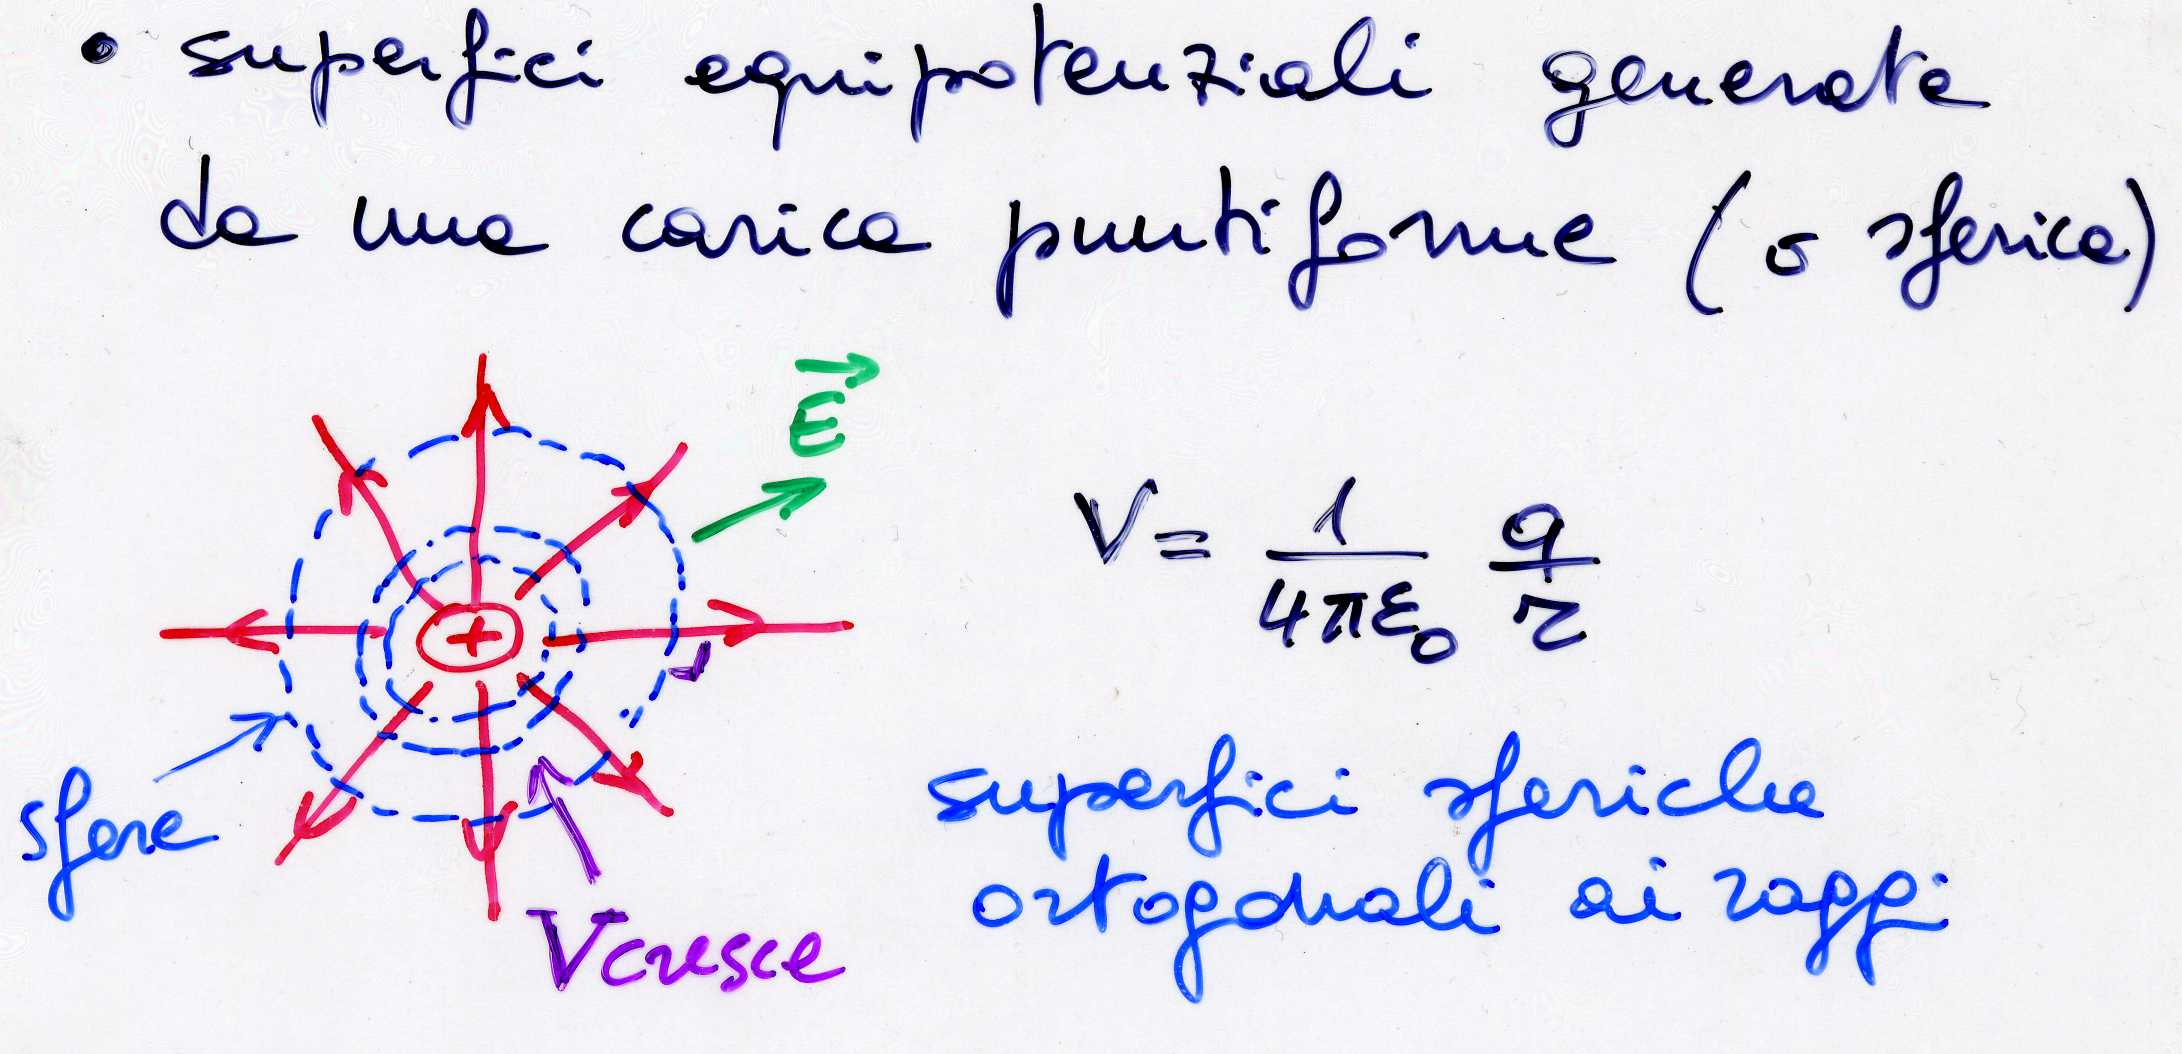 • superfici equipotenziali generate
da una carica puntiforme (o sferica)
E
+
V = 1/(4πε₀) q/r
sfere
superfici sferiche
ortogonali ai raggi
V cresce